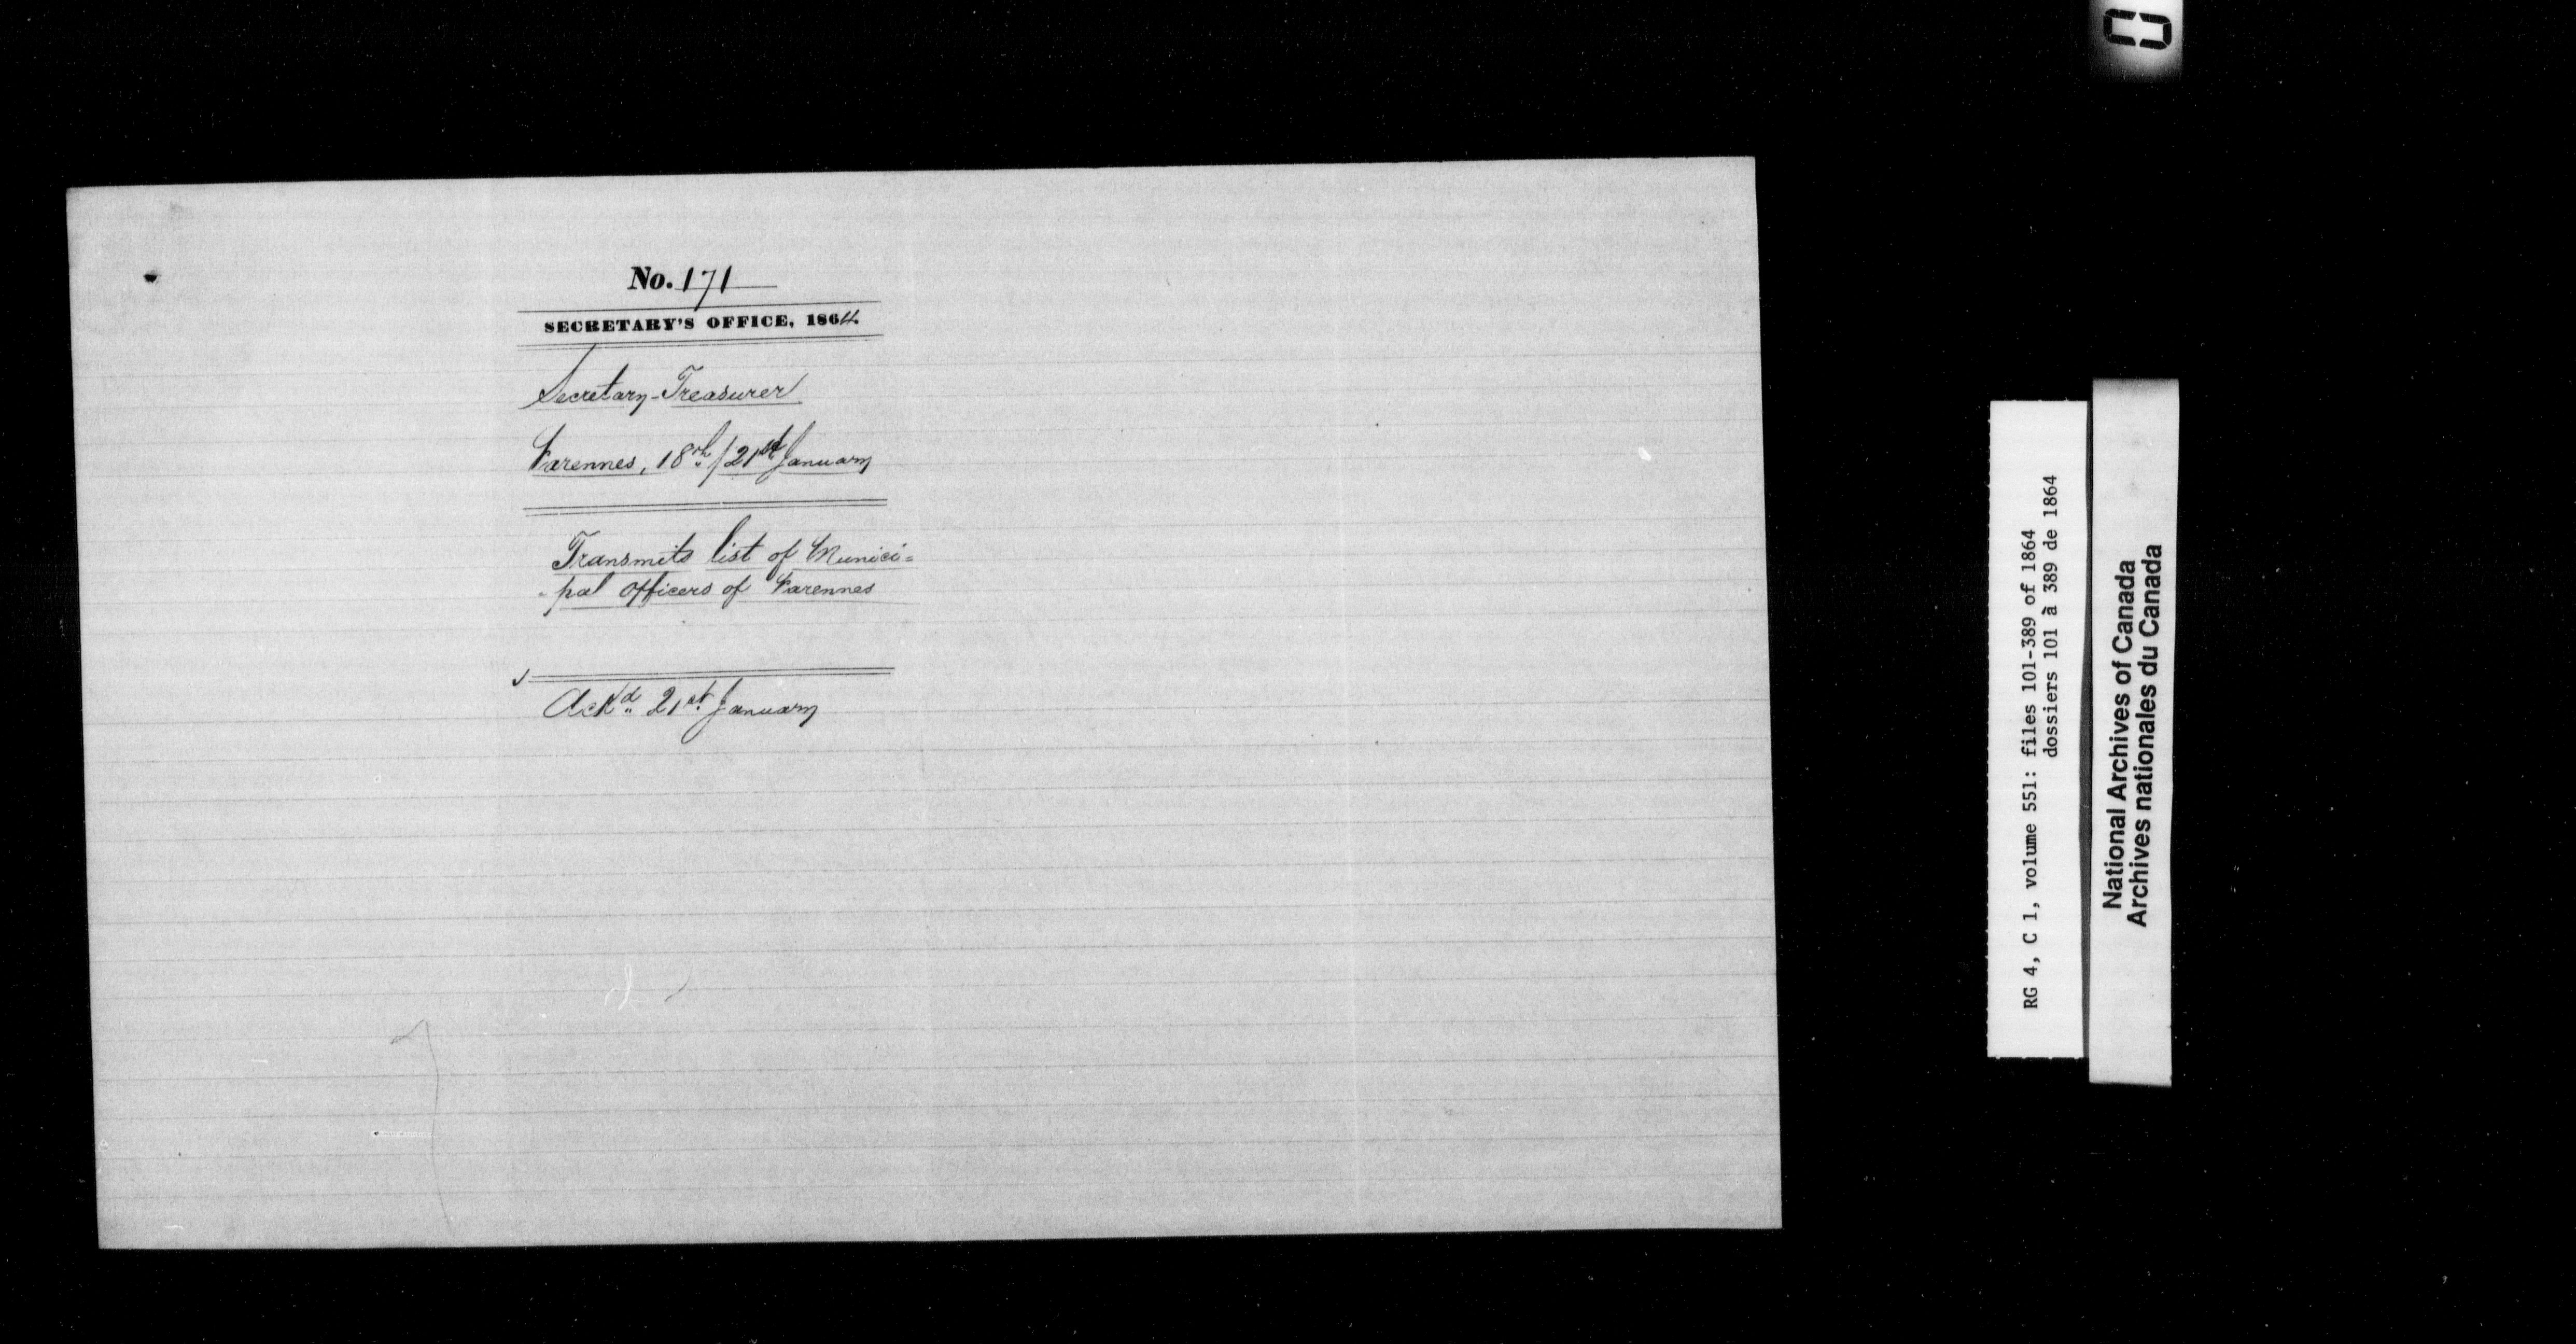 No. 171
SECRETARY'S OFFICE, 1864.
Secretary-Treasurer
Varennes, 18th / 21st January
Transmits list of Munici=
-pal Officers of Varennes
Ackd 21st January
RG 4, C 1, volume 551: files 101-389 of 1864
dossiers 101 à 389 de 1864
National Archives of Canada
Archives nationales du Canada